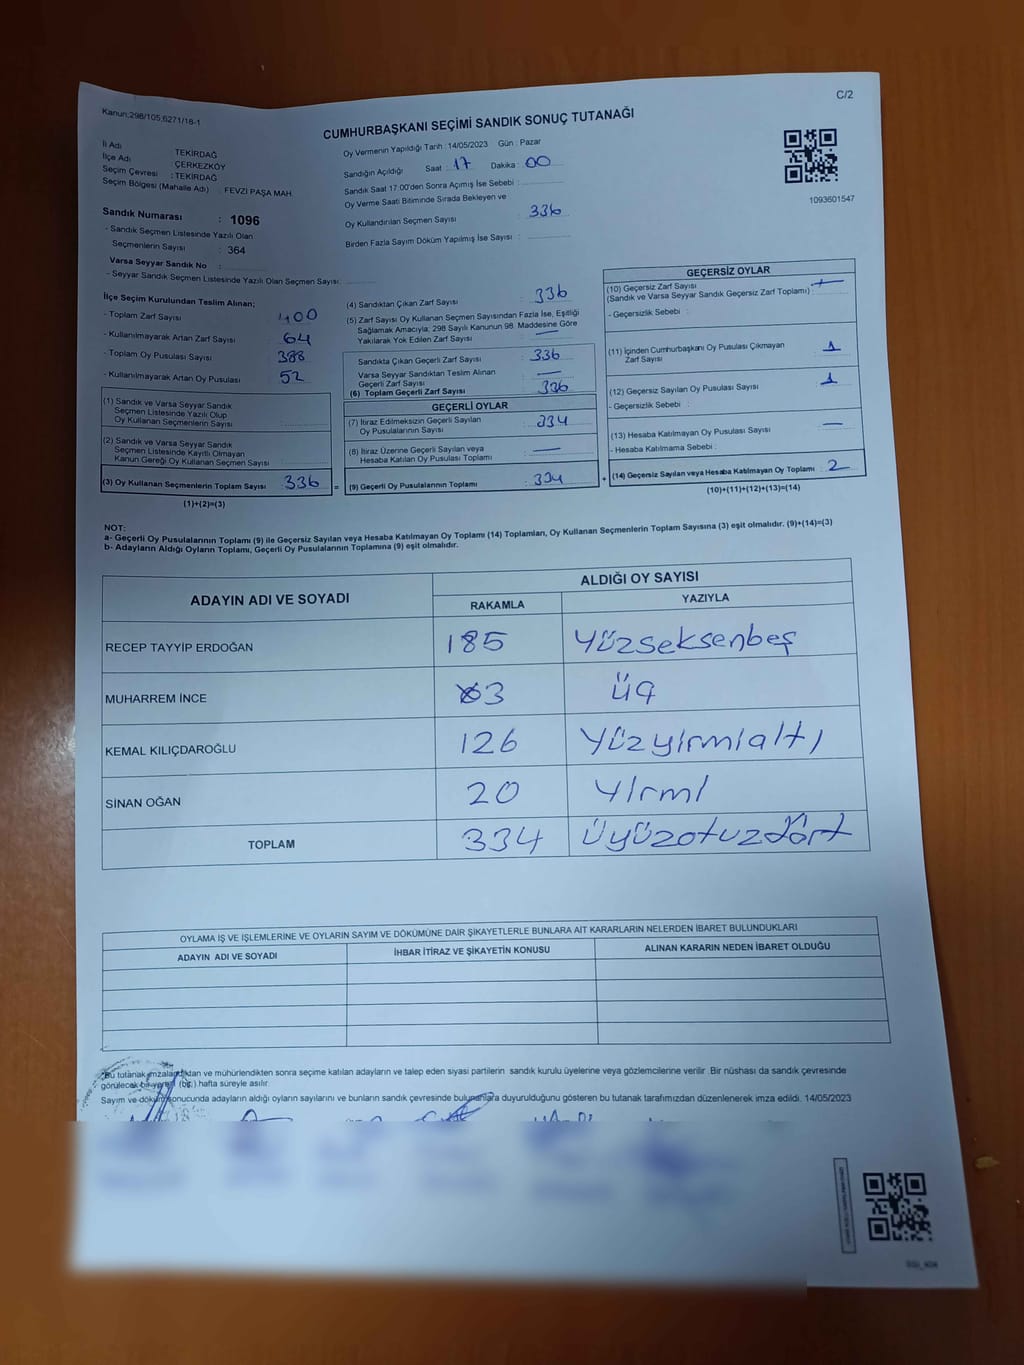 C/2
Kanun;298/105,6271/18-1
CUMHURBAŞKANI SEÇİMİ SANDIK SONUÇ TUTANAĞI
İl Adı : TEKİRDAĞ
İlçe Adı : ÇERKEZKÖY
Seçim Çevresi : TEKİRDAĞ
Seçim Bölgesi (Mahalle Adı) : FEVZİ PAŞA MAH.
Sandık Numarası : 1096
- Sandık Seçmen Listesinde Yazılı Olan
Seçmenlerin Sayısı : 364
Varsa Seyyar Sandık No :
- Seyyar Sandık Seçmen Listesinde Yazılı Olan Seçmen Sayısı:
Oy Vermenin Yapıldığı Tarih : 14/05/2023 Gün : Pazar
Sandığın Açıldığı Saat : 17 Dakika : 00
Sandık Saat 17:00'den Sonra Açımış İse Sebebi :
Oy Verme Saati Bitiminde Sırada Bekleyen ve
Oy Kullandırılan Seçmen Sayısı : 336
Birden Fazla Sayım Döküm Yapılmış İse Sayısı :
1093601547
İlçe Seçim Kurulundan Teslim Alınan;
- Toplam Zarf Sayısı : 400
- Kullanılmayarak Artan Zarf Sayısı : 64
- Toplam Oy Pusulası Sayısı : 388
- Kullanılmayarak Artan Oy Pusulası : 52
(1) Sandık ve Varsa Seyyar Sandık
Seçmen Listesinde Yazılı Olup
Oy Kullanan Seçmenlerin Sayısı :
(2) Sandık ve Varsa Seyyar Sandık
Seçmen Listesinde Kayıtlı Olmayan
Kanun Gereği Oy Kullanan Seçmen Sayısı :
(3) Oy Kullanan Seçmenlerin Toplam Sayısı : 336 =
(1)+(2)=(3)
(4) Sandıktan Çıkan Zarf Sayısı : 336
(5) Zarf Sayısı Oy Kullanan Seçmen Sayısından Fazla İse, Eşitliği
Sağlamak Amacıyla; 298 Sayılı Kanunun 98. Maddesine Göre
Yakılarak Yok Edilen Zarf Sayısı : —
Sandıkta Çıkan Geçerli Zarf Sayısı : 336
Varsa Seyyar Sandıktan Teslim Alınan
Geçerli Zarf Sayısı : —
(6) Toplam Geçerli Zarf Sayısı : 336
GEÇERLİ OYLAR
(7) İtiraz Edilmeksizin Geçerli Sayılan
Oy Pusulalarının Sayısı : 334
(8) İtiraz Üzerine Geçerli Sayılan veya
Hesaba Katılan Oy Pusulası Toplamı : —
(9) Geçerli Oy Pusulalarının Toplamı : 334 +
GEÇERSİZ OYLAR
(10) Geçersiz Zarf Sayısı
(Sandık ve Varsa Seyyar Sandık Geçersiz Zarf Toplamı) : —
- Geçersizlik Sebebi :
(11) İçinden Cumhurbaşkanı Oy Pusulası Çıkmayan
Zarf Sayısı : 1
(12) Geçersiz Sayılan Oy Pusulası Sayısı : 1
- Geçersizlik Sebebi :
(13) Hesaba Katılmayan Oy Pusulası Sayısı : —
- Hesaba Katılmama Sebebi :
(14) Geçersiz Sayılan veya Hesaba Katılmayan Oy Toplamı : 2
(10)+(11)+(12)+(13)=(14)
NOT:
a- Geçerli Oy Pusulalarının Toplamı (9) ile Geçersiz Sayılan veya Hesaba Katılmayan Oy Toplamı (14) Toplamları, Oy Kullanan Seçmenlerin Toplam Sayısına (3) eşit olmalıdır. (9)+(14)=(3)
b- Adayların Aldığı Oyların Toplamı, Geçerli Oy Pusulalarının Toplamına (9) eşit olmalıdır.
ADAYIN ADI VE SOYADI ALDIĞI OY SAYISI
RAKAMLA YAZIYLA
RECEP TAYYİP ERDOĞAN 185 Yüzseksenbeş
MUHARREM İNCE 3 üç
KEMAL KILIÇDAROĞLU 126 Yüzyirmialtı
SİNAN OĞAN 20 Yirmi
TOPLAM 334 Üyüzotuzdört
OYLAMA İŞ VE İŞLEMLERİNE VE OYLARIN SAYIM VE DÖKÜMÜNE DAİR ŞİKAYETLERLE BUNLARA AİT KARARLARIN NELERDEN İBARET BULUNDUKLARI
ADAYIN ADI VE SOYADI İHBAR İTİRAZ VE ŞİKAYETİN KONUSU ALINAN KARARIN NEDEN İBARET OLDUĞU
Bu tutanak imzalandıktan ve mühürlendikten sonra seçime katılan adayların ve talep eden siyasi partilerin sandık kurulu üyelerine veya gözlemcilerine verilir .Bir nüshası da sandık çevresinde
görülecek bir yere (bir) hafta süreyle asılır.
Sayım ve döküm sonucunda adayların aldığı oyların sayılarını ve bunların sandık çevresinde bulunanlara duyurulduğunu gösteren bu tutanak tarafımızdan düzenlenerek imza edildi. 14/05/2023